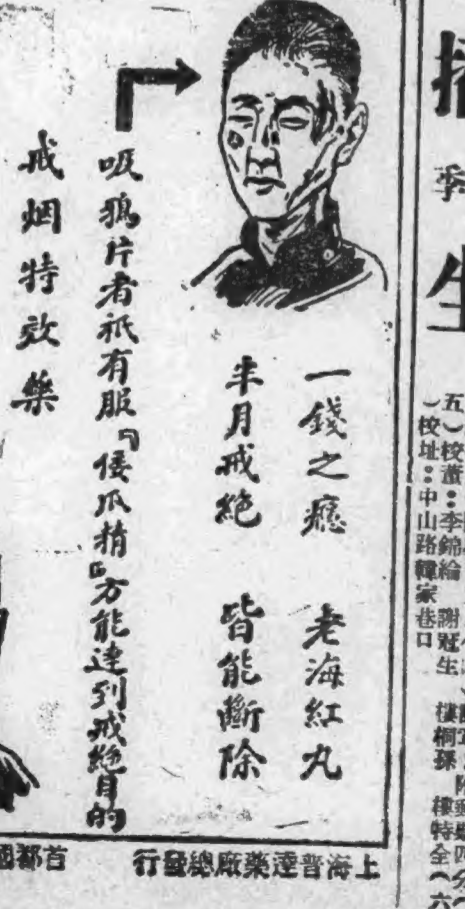 一錢之癮　老海紅丸
半月戒絶　皆能斷除
吸鴉片者祇有服『倭爪精』方能達到戒絶目的
戒烟特效藥
上海普達藥厰總發行
首都
季
生
五）校董：李錦綸　謝冠生
）校址：中山路韓家巷口
樓桐孫　樓特全（六